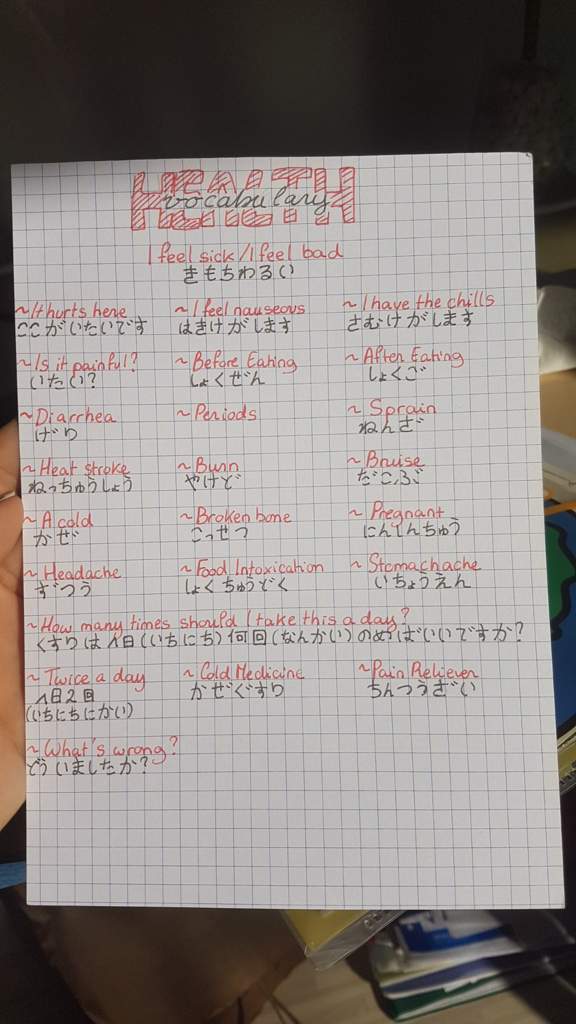 HEALTH
vocabulary
I feel sick/I feel bad
きもちわるい
~It hurts here ~I feel nauseous ~I have the chills
ここがいたいです はきけがします さむけがします
~Is it painful? ~Before Eating ~After Eating
いたい? しょくぜん しょくご
~Diarrhea ~Periods ~Sprain
げり ねんざ
~Heat stroke ~Burn ~Bruise
ねっちゅうしょう やけど だこぶ
~A cold ~Broken bone ~Pregnant
かぜ こっせつ にんしんちゅう
~Headache ~Food Intoxication ~Stomachache
ずつう しょくちゅうどく いちょうえん
~How many times should I take this a day?
くすりは1日(いちにち)何回(なんかい)のめばいいですか?
~Twice a day ~Cold Medicine ~Pain Reliever
1日2回 かぜぐすり ちんつうざい
(いちにちにかい)
~What's wrong?
どういましたか?